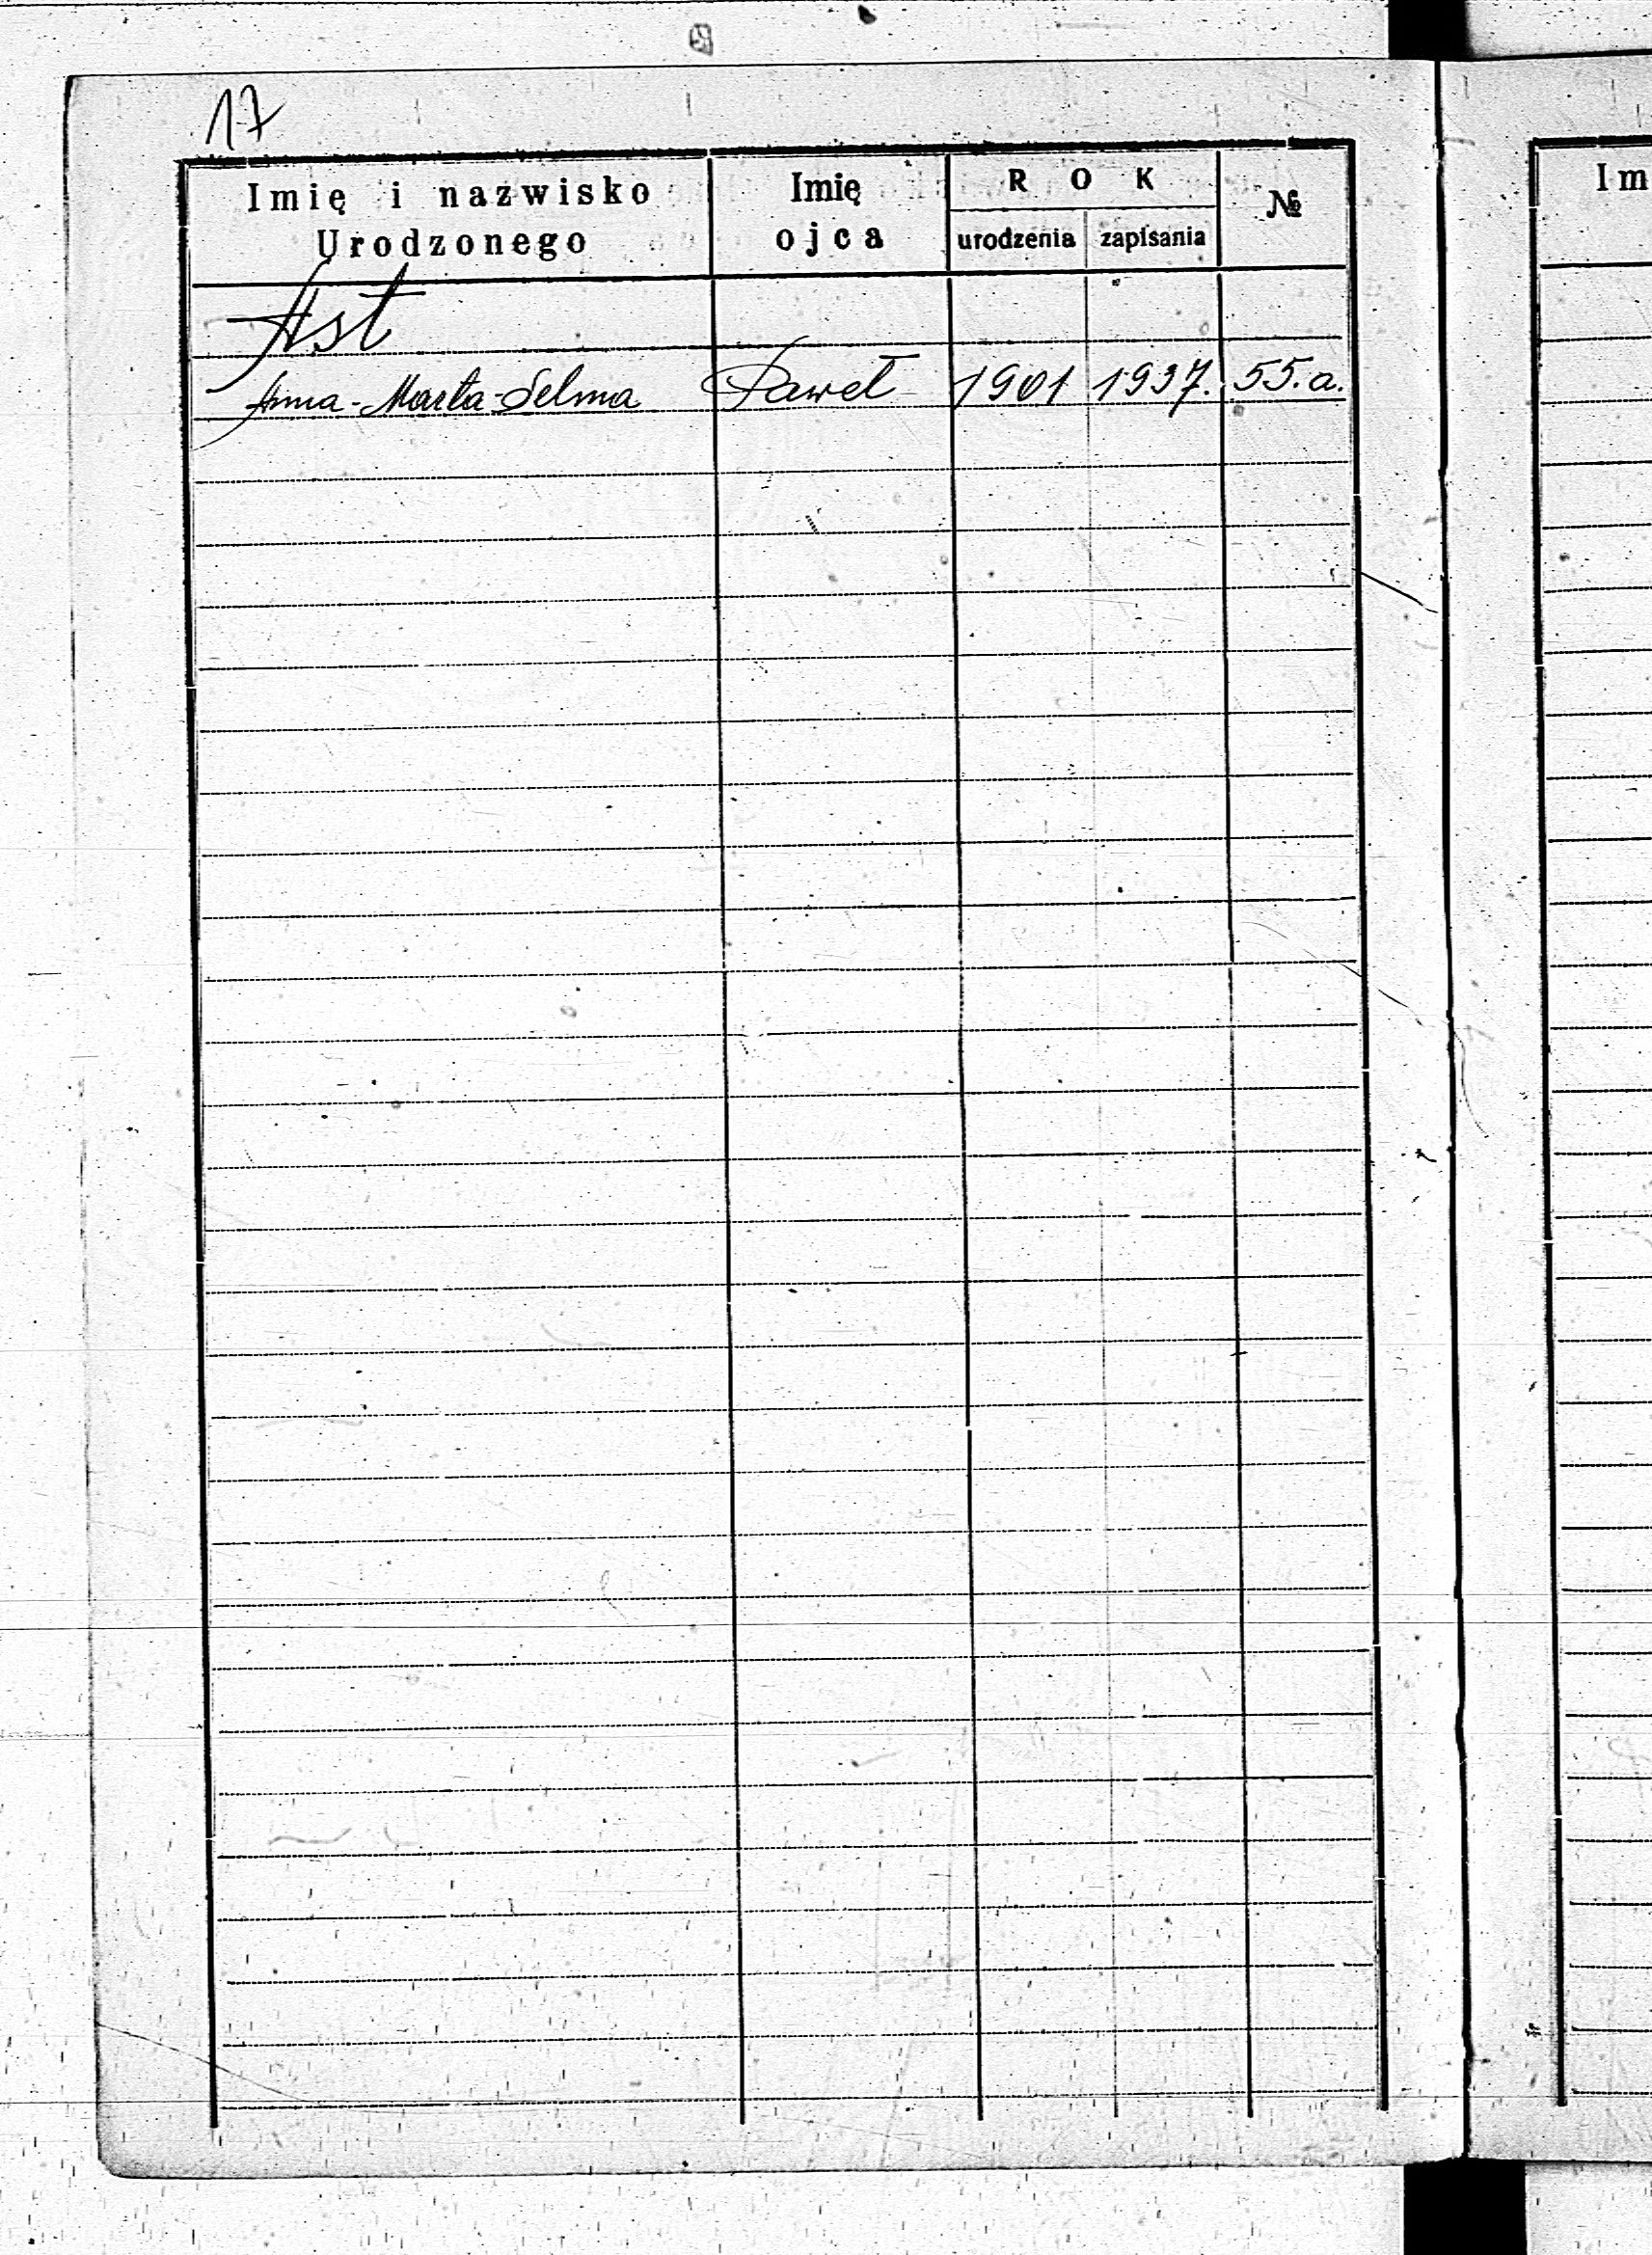 17
Imię i nazwisko Urodzonego
Imię ojca
ROK
urodzenia
zapisania
№
Ast
Anna-Marta-Selma Paweł 1901 1937. 55.a.
Im